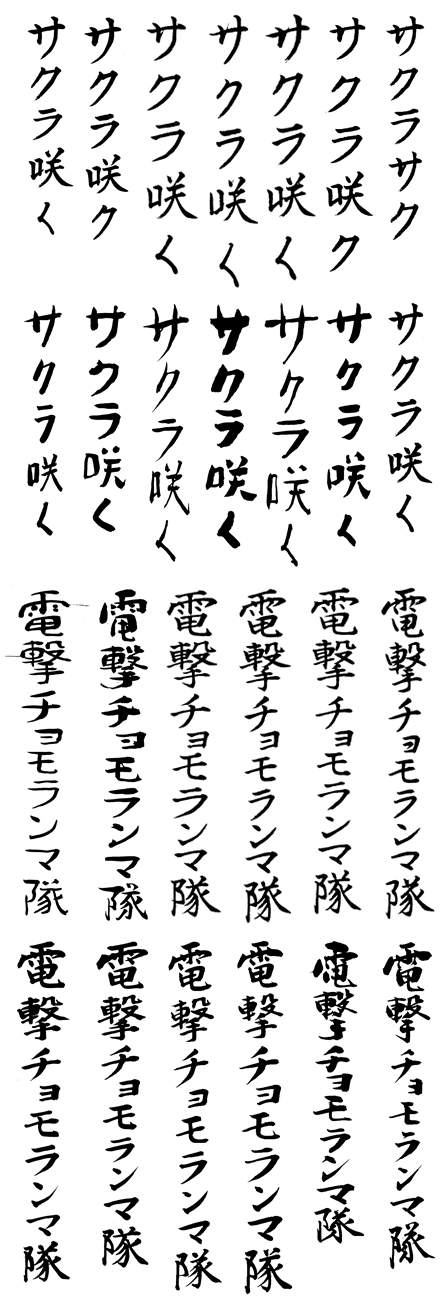 サクラサク
サクラ咲ク
サクラ咲く
サクラ咲く
サクラ咲く
サクラ咲ク
サクラ咲く
サクラ咲く
サクラ咲く
サクラ咲く
サクラ咲く
サクラ咲く
サクラ咲く
サクラ咲く
電撃チョモランマ隊
電撃チョモランマ隊
電撃チョモランマ隊
電撃チョモランマ隊
電撃チョモランマ隊
電撃チョモランマ隊
電撃チョモランマ隊
電撃チョモランマ隊
電撃チョモランマ隊
電撃チョモランマ隊
電撃チョモランマ隊
電撃チョモランマ隊